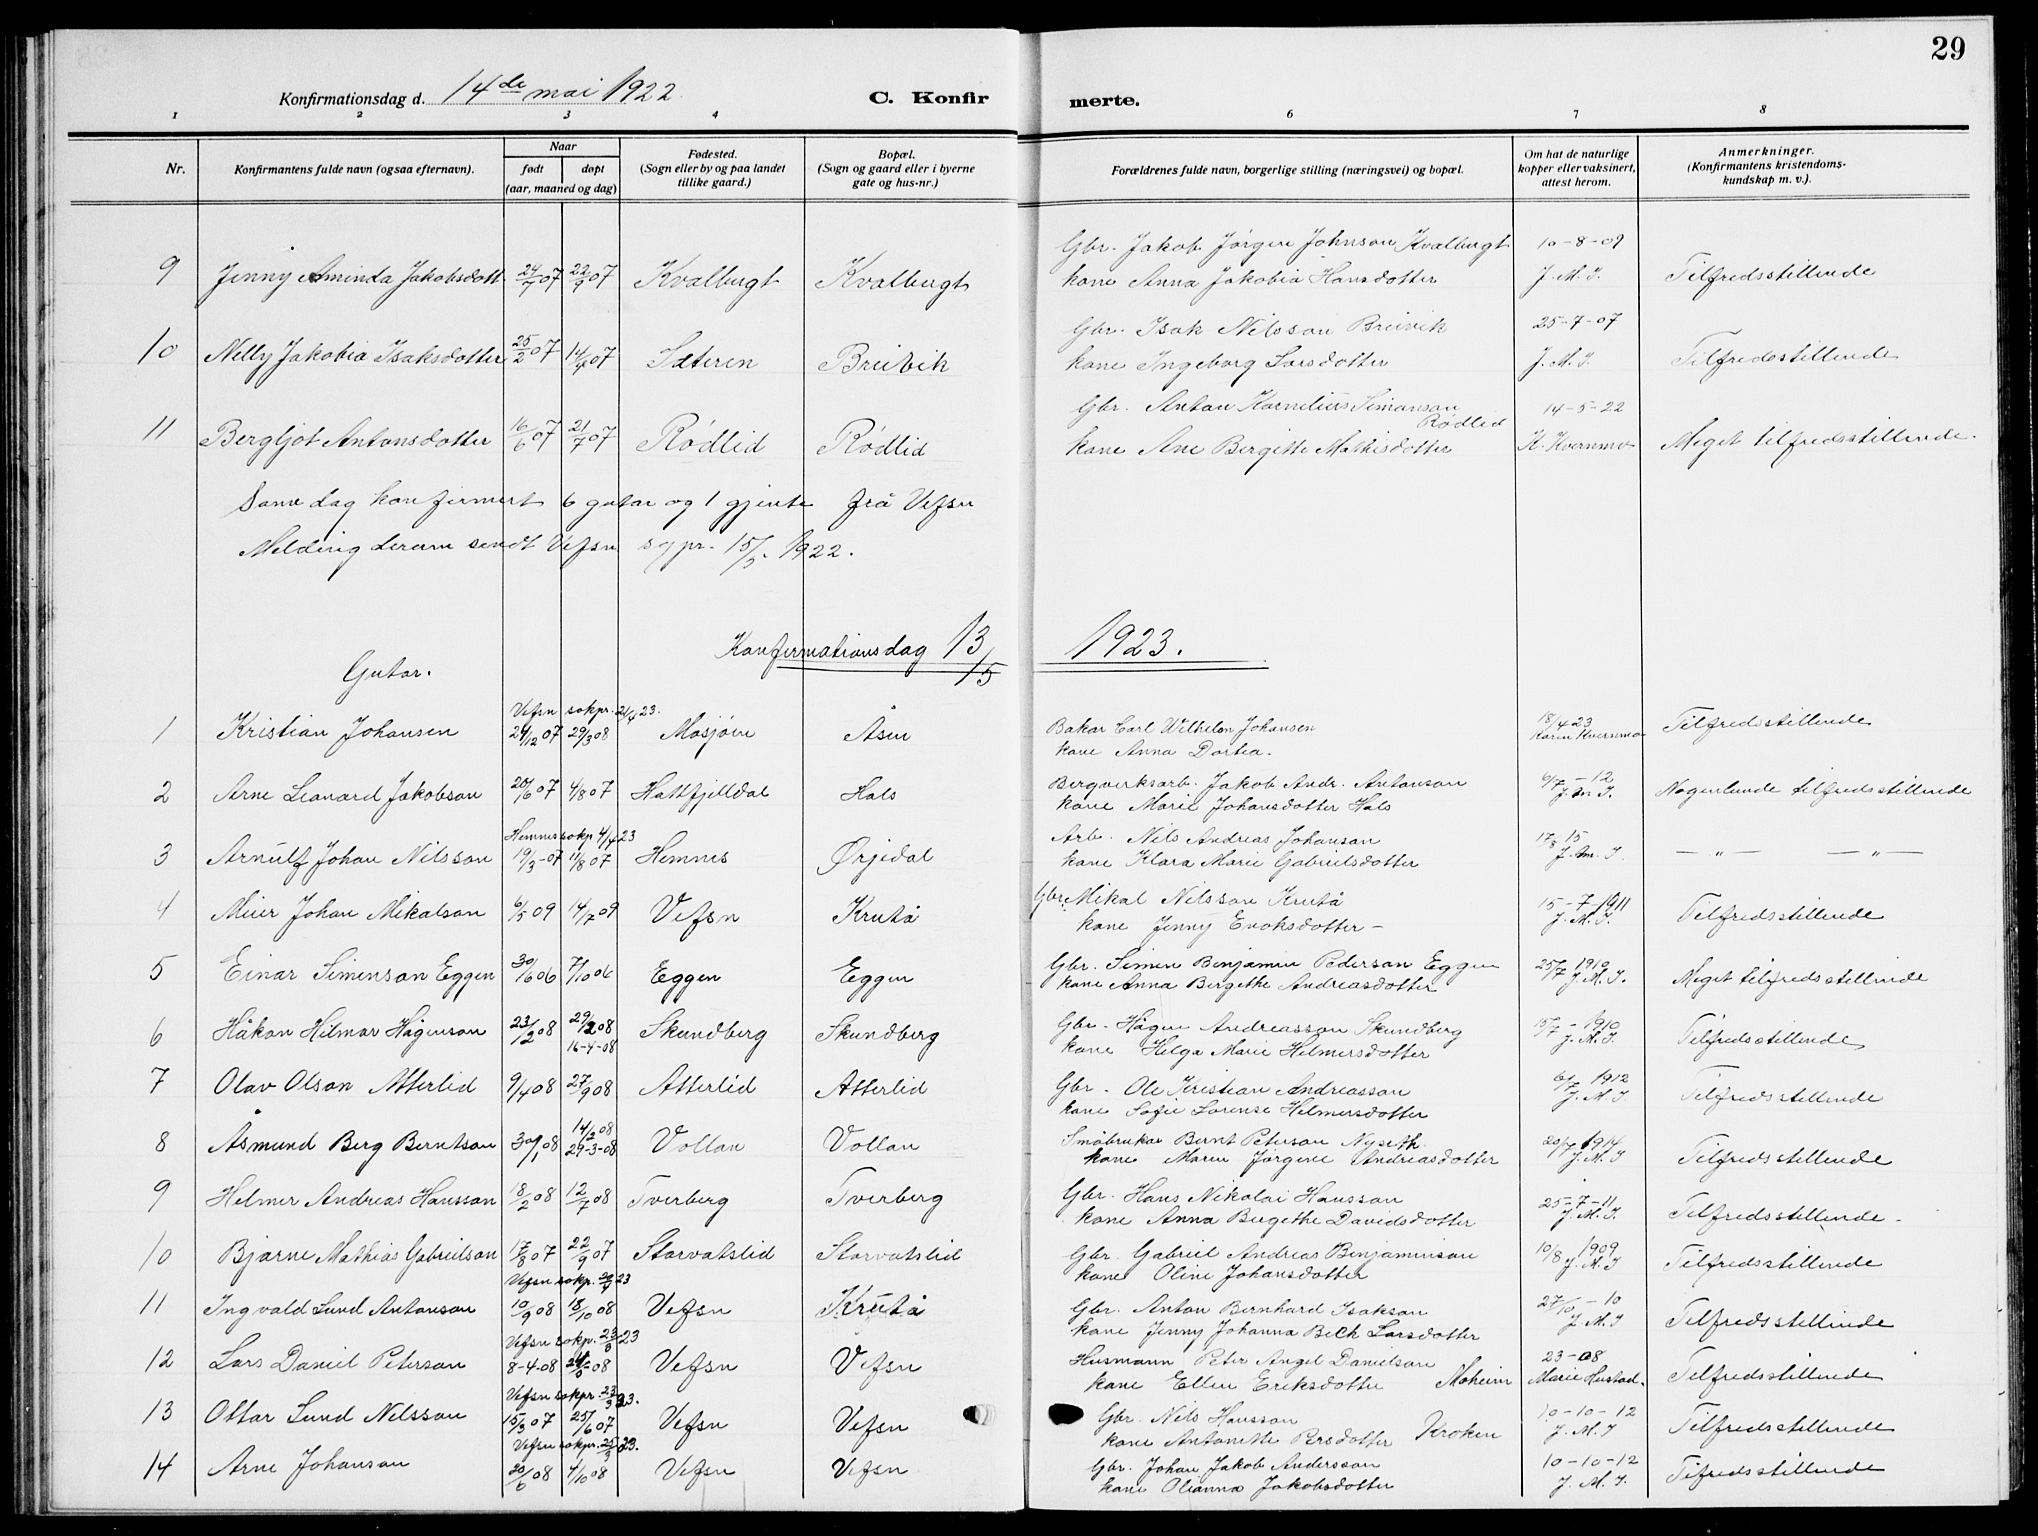 29
Konfirmationsdag d. 14de mai 1922.
C. Konfirmerte.
1 2 3 4 6 7 8
Nr.
Konfirmantens fulde navn (ogsaa efternavn).
Naar
født døpt
(aar, maaned og dag)
Fødested.
(Sogn eller by og paa landet
tillike gaard.)
Bopæl.
(Sogn og gaard eller i byerne
gate og hus-nr.)
Forældrenes fulde navn, borgerlige stilling (næringsvei) og bopæl.
Om hat de naturlige
kopper eller vaksinert,
attest herom.
Anmerkninger.
(Konfirmantens kristendoms-
kundskap m. v.).
Gbr. Jakob Jørgen Johnson Kvalbugt 10-8-09
9 Jenny Aminda Jakobsdott. 24/7 07 22/9 07 Kvalbugt Kvalbugt kone Anna Jakobia Hansdotter J. M. J. Tilfredsstillende
Gbr. Isak Nilsson Breivik 25-7-07
10 Nelly Jakobia Isaksdotter 25/2 07 14/4 07 Sæteren Breivik kone Ingeborg Larsdotter J. M. J. Tilfredsstillende
Gbr. Anton Kornelius Simonson Rødlid 14-5-22
11 Bergljot Antonsdotter 16/6 07 21/7 07 Rødlid Rødlid kone Ane Bergitte Mathisdotter K. Kvernmo Meget tilfredsstillende.
Same dag konfirmert 6 gutar og 1 gjente frå Vefsn
Melding derom sendt Vefsn sgpr. 15/5. 1922.
Konfirmationsdag 13/5 1923.
Gutar.
Vefsn sokpr. 21/4 23.
1 Kristian Johansen 24/12 07 29/3 08 Mosjøen Åsen Bakar Carl Wilhelm Johansen 18/4 23 Tilfredsstillende
kone Anna Dortea. Karen Kvernmo
2 Arne Leonard Jakobson 20/6 07 4/8 07 Hattfjelldal Hals Bergverksarb. Jakob Andr. Antonson 6/7 -12 Nogenlunde tilfredsstillende
kone Marie Johansdotter Hals J. M. J.
Hemnes sokp 4/4 23
3 Arnulf Johan Nilsson 19/3-07 11/8 07 Hemnes Ørjedal Arb. Nils Andreas Johanson 17/8 15 — „ — — „ —
kone Klara Marie Gabrielsdotter J. M. J.
4 Meier Johan Mikalson 6/5 09 14/7 09 Vefsn Krutå Gbr. Mikal Nilsson Krutå 15-7-1911 Tilfredsstillende
kone Jenny Enoksdotter - J. M. J.
5 Einar Simenson Eggen 30/6 06 7/10 06 Eggen Eggen Gbr. Simen Benjamin Pederson Eggen 25/7 1910 Meget tilfredsstillende
kone Anna Bergithe Andreasdotter J. M. J.
6 Håkon Hilmar Hågenson 23/2 08 29/3 08 Skundberg Skundberg Gbr. Hågen Andreasson Skundberg 15/7 - 1910 Tilfredsstillende
16-4-08 kone Helga Marie Helmersdotter J. M. J.
7 Olav Olson Atterlid 9/4 08 27/9 08 Atterlid Atterlid Gbr. Ole Kristian Andreasson 6/7 1912 Tilfredsstillende
kone Sofie Lorense Helmersdotter J. M. J.
14/2 08
8 Åsmund Berg Berntson 30/1 08 29-3-08 Vollan Vollan Småbrukar Bernt Peterson Nyseth. 20/7 1914 Tilfredsstillende
kone Maren Jørgine Andreasdotter J. M. J
9 Helmer Andreas Hansson 18/2 08 12/7 08 Tverberg Tverberg Gbr. Hans Nikolai Hansson 25-7-11 Tilfredsstillende.
kone Anna Bergethe Davidsdotter J. M. J.
10 Bjarne Mathias Gabrielson 17/8 07 22/9 07 Storvatslid Storvatslid Gbr. Gabriel Andreas Benjaminson 10/8 1909 Tilfredsstillende
kone Oline Johansdotter J. M. J
Vefsn sokp. 23
11 Ingvald Lund Antonson 10/9 08 18/10 08 Vefsn Krutå Gbr. Anton Bernhard Isakson 27/10 - 10 Tilfredsstillende
kone Jenny Johanna Bech Larsdotter J. M. J
Vefsn sokpr. 23/3 23
12 Lars Daniel Peterson 8-4-08 08 Vefsn Vefsn Husmann Peter Angel Danielson 23- 08 Tilfredsstillende
kone Ellen Eriksdotter Moheim Marie Hustad.
Vefsn sokpr. 23/3 23.
13 Ottar Lund Nilsson 15/3 07 25/6 07 Vefsn Vefsn Gbr. Nils Hansson 10-10-12 Tilfredsstillende
kone Antonette Persdotter Kroken J. M. J
Vefsn sokpr. 23.
14 Arne Johanson 20/6 08 4/10 08 Vefsn Vefsn Gbr. Johan Jakob Andersson 10-10-12 Tilfredsstillende
kone Olianna Jakobsdotter J. M. J.